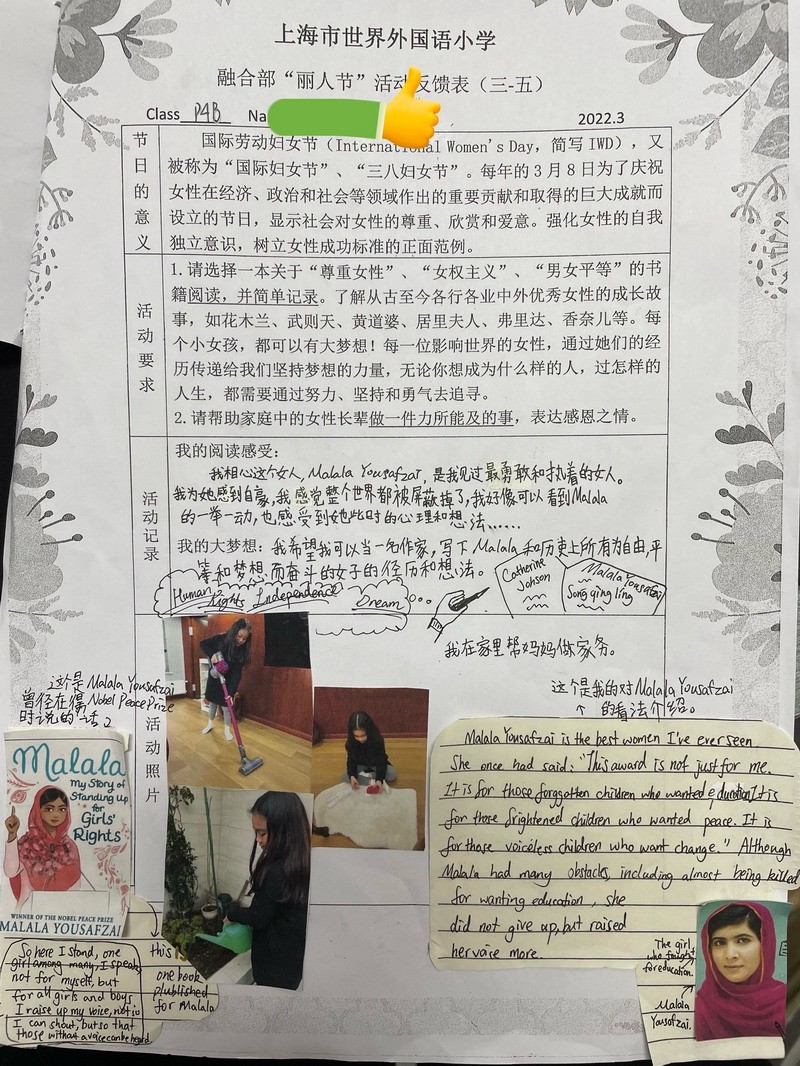 上海市世界外国语小学
融合部“丽人节”活动反馈表（三-五）
Class P4B Na 2022.3
节日的意义
国际劳动妇女节（International Women's Day，简写 IWD），又
被称为“国际妇女节”、“三八妇女节”。每年的 3 月 8 日为了庆祝
女性在经济、政治和社会等领域作出的重要贡献和取得的巨大成就而
设立的节日，显示社会对女性的尊重、欣赏和爱意。强化女性的自我
独立意识，树立女性成功标准的正面范例。
活动要求
1.请选择一本关于“尊重女性”、“女权主义”、“男女平等”的书
籍阅读，并简单记录。了解从古至今各行各业中外优秀女性的成长故
事，如花木兰、武则天、黄道婆、居里夫人、弗里达、香奈儿等。每
个小女孩，都可以有大梦想！每一位影响世界的女性，通过她们的经
历传递给我们坚持梦想的力量，无论你想成为什么样的人，过怎样的
人生，都需要通过努力、坚持和勇气去追寻。
2.请帮助家庭中的女性长辈做一件力所能及的事，表达感恩之情。
活动记录
我的阅读感受：
我相心这个女人，Malala Yousafzai，是我见过最勇敢和执着的女人。
我为她感到自豪，我感觉整个世界都被屏蔽掉了，我好像可以看到Malala
的一举一动，也感受到她些时的心理和想法……
我的大梦想：我希望我可以当一名作家，写下 Malala 和历史上所有为自由，平
等和梦想而奋斗的女子的径历和想法。
Human Rights Independence Dream
Catherine
Johson
Malala Yousafzai
Song qing ling
我在家里帮妈妈做家务。
活动照片
这个是 Malala Yousafzai
曾径在得 Nobel Peace Prize
时说的话
这个是我的对Malala Yousafzai
↑ 的看法介绍。
Malala
My Story of
Standing Up
for
Girls'
Rights
WINNER OF THE NOBEL PEACE PRIZE
MALALA YOUSAFZAI
So here I stand, one
girl among many, I speak
not for myself, but
for all girls and boys
I raise up my voice, not so
I can shout, but so that
those without a voice can be heard
this is
one book
plublished
for Malala
Malala Yousafzai is the best women I've ever seen
She once had said: "This award is not just for me.
It is for those forggotten children who wanted education, It is
for those frightened children who wanted peace. It is
for those voiceless children who want change." Although
Malala had many obstacles, including almost being killed
for wanting education, she
did not give up, but raised
her voice more.
The girl
who fought
for education.
Malala
Yousafzai.